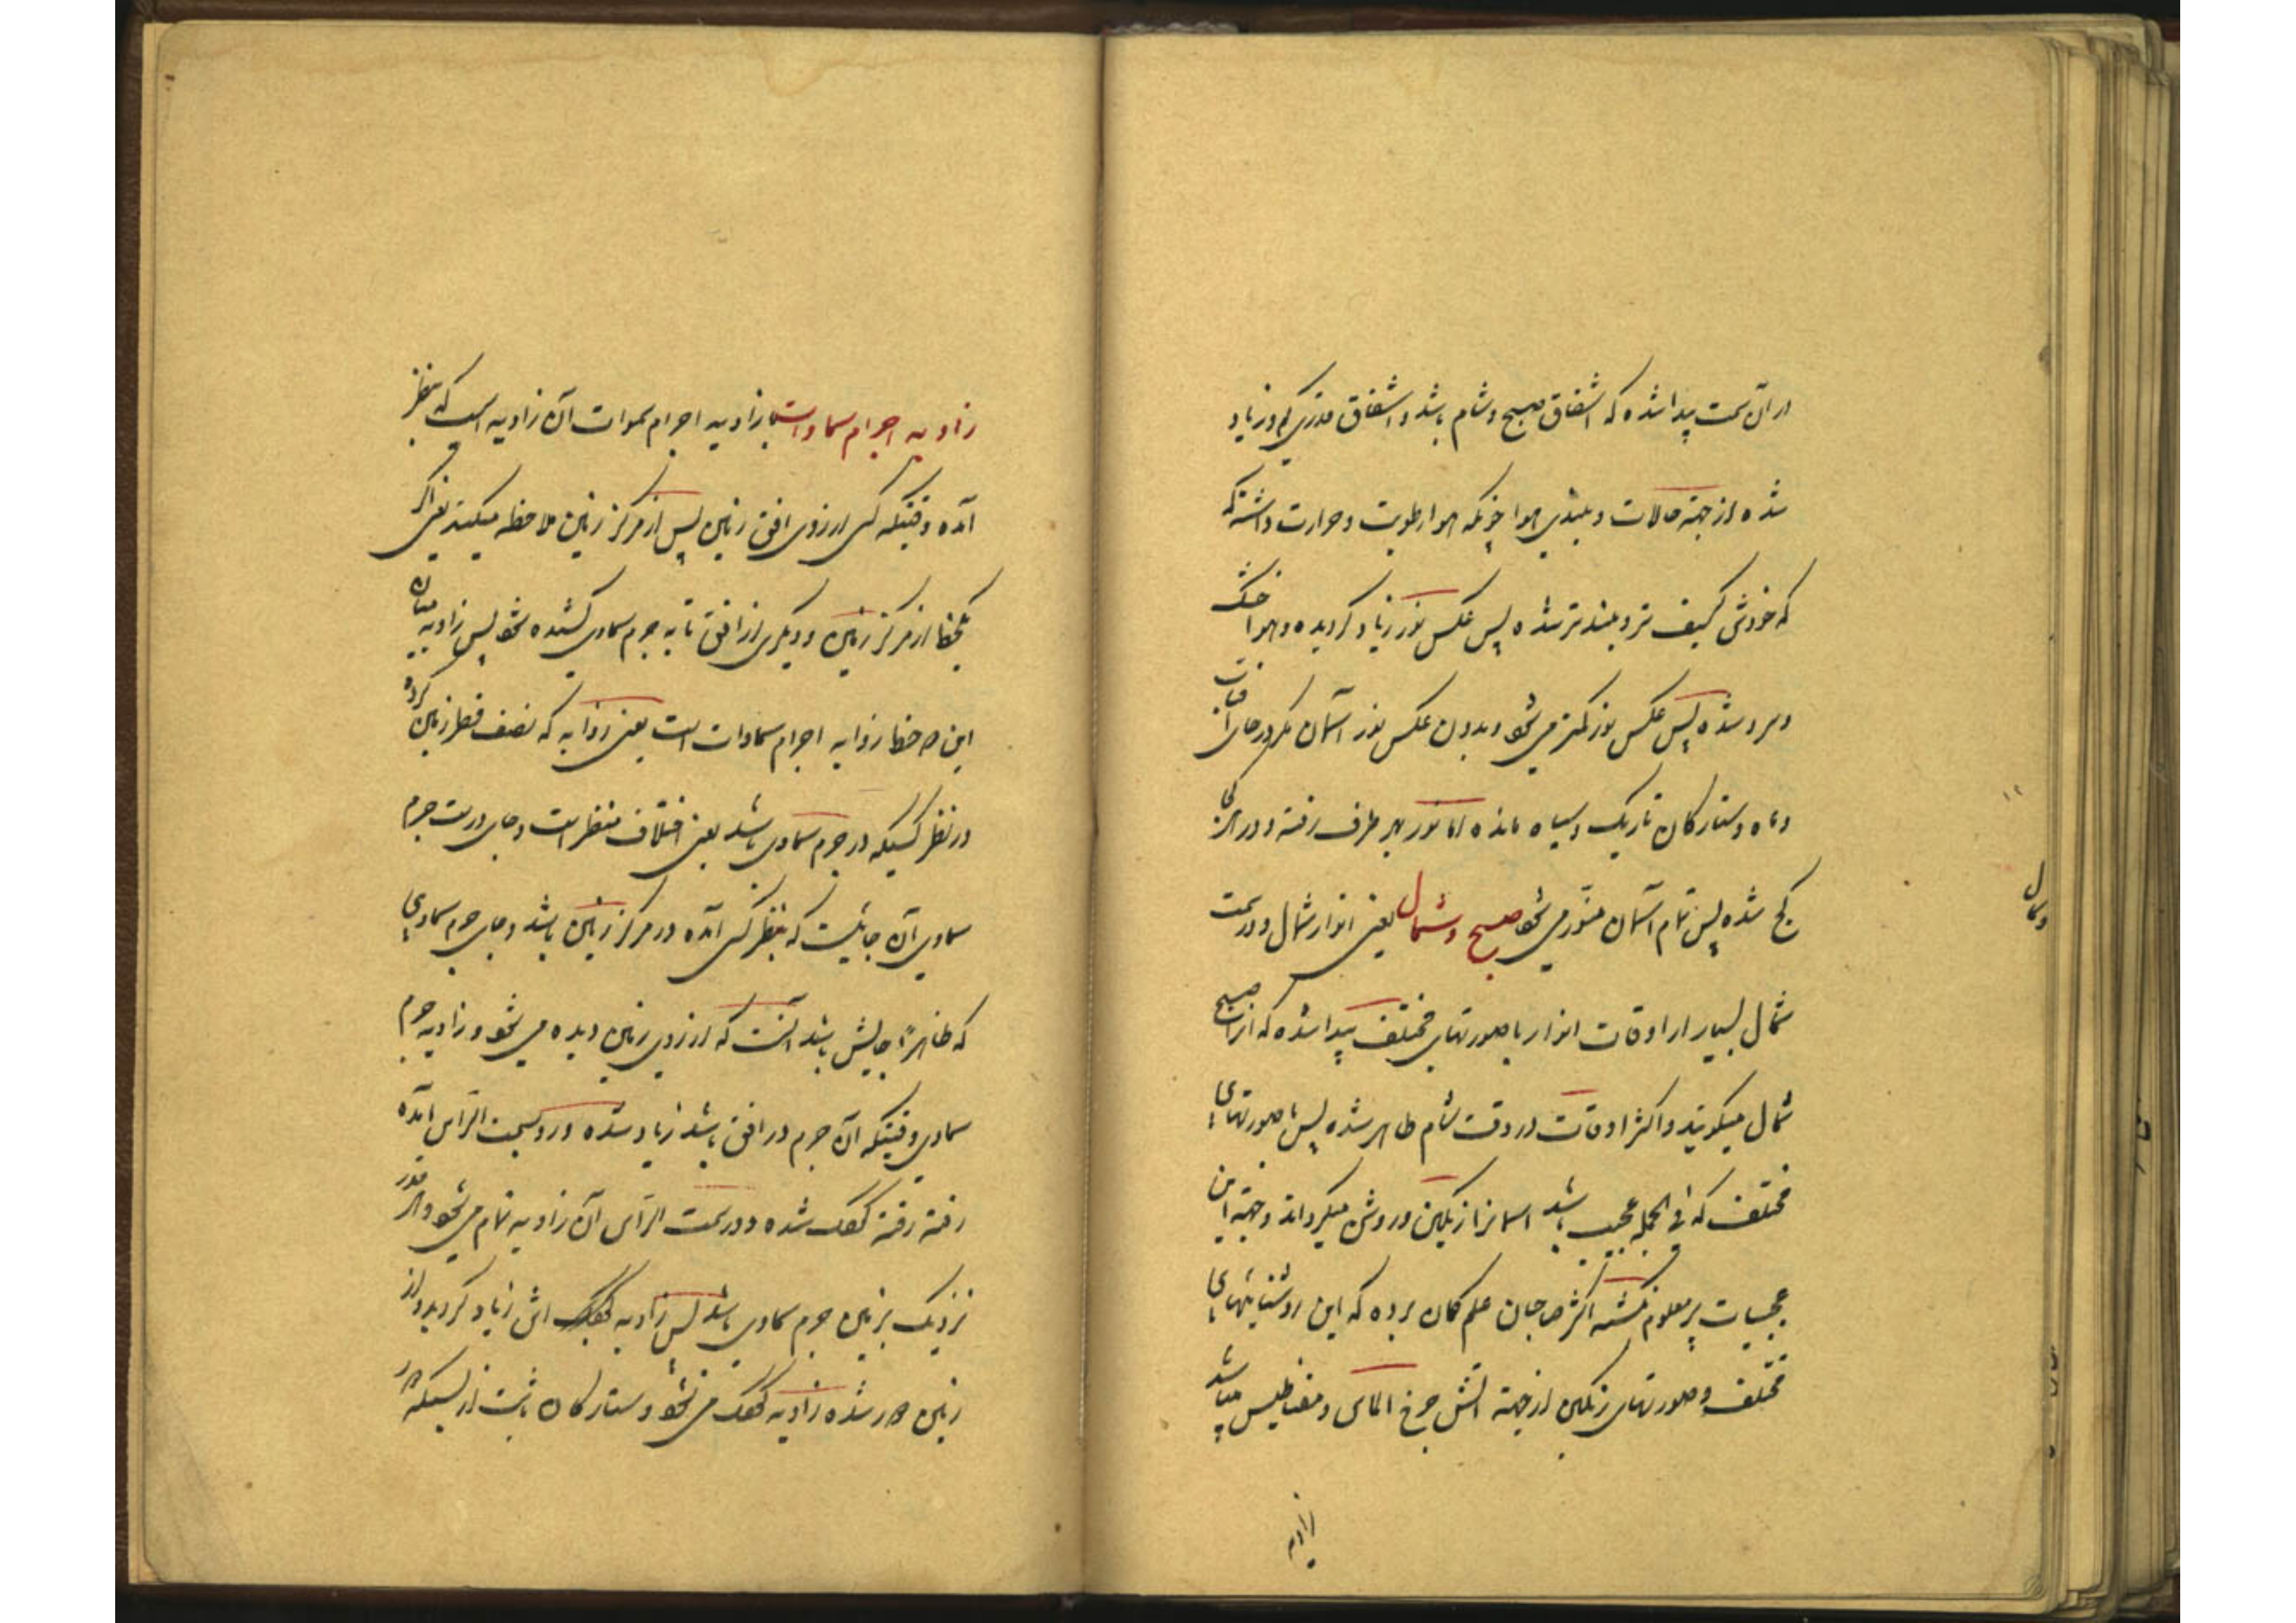 در آن سمت پیدا شده که اشفاق صبح و شام باشد و اشفاق قدری کم و زیاد
شده از جهته حالات و بلندی هوا چونکه هوا رطوبت و حرارت داشته که
که خودش کثیف تر و بلند تر شده پس عکس نور زیاد گردیده و هوا خشک
و سرد شده پس عکس نور کمتر می شود و بدون عکس نور آسمان مگر در جای آفتاب
و ماه و ستارکان تاریک و سیاه مانده اما نور بهر طرف رفته و در
کج شده پس تمام آسمان منور می شود صبح و شمال یعنی انوار شمال و در سمت
شمال بسیار از اوقات انوار با صورتهای مختلف پیدا شده که انرا صبح
شمال میگویند و اکثر اوقات در وقت شام ظاهر شده پس با صورتهای
مختلف که فی الجمله عجیب باشد اسمانرا رنگین و روشن میگرداند و جهته این
عجیبات پر معلوم نگشته اکثر صاحبان علم کمان برده که این روشنایهای
مختلف و صورتهای رنگین از جهته آتش چرخ الماس و مغناطیس میباشد
زاویه
وشمال
زاویه اجرام سماوات زاویه اجرام سموات آن زاویه است که بنظر
آمده وقتیکه کسی از روی افق زمین پس از مرکز زمین ملاحظه میکند یعنی اگر
یکخط از مرکز زمین و دیگری از افق تا به جرم سماوی کشیده شود پس زاویه میان
این دو خط زوایه اجرام سماوات است یعنی زوایه که نصف قطر زمین کرده
در نظر کسیکه در جرم سماوی باشد یعنی اختلاف منظر است و جای درست جرم
سماوی آن جائیست که بنظر کسی آمده در مرکز زمین باشد و جای جرم سماوی
که ظاهراً جایش باشد آنست که از روی زمین دیده می شود و زاویه جرم
سماوی وقتیکه آن جرم در افق باشد زیاد شده و رو بسمت الراس آمده
رفته رفته کوچک شده و در سمت الراس آن زاویه تمام می شود و هر قدر
نزدیک بزمین جرم سماوی باشد پس زاویه اش زیاد گردیده و از
زمین دور شده زاویه کوچک می شود و ستارکان ثابت از بسیکه